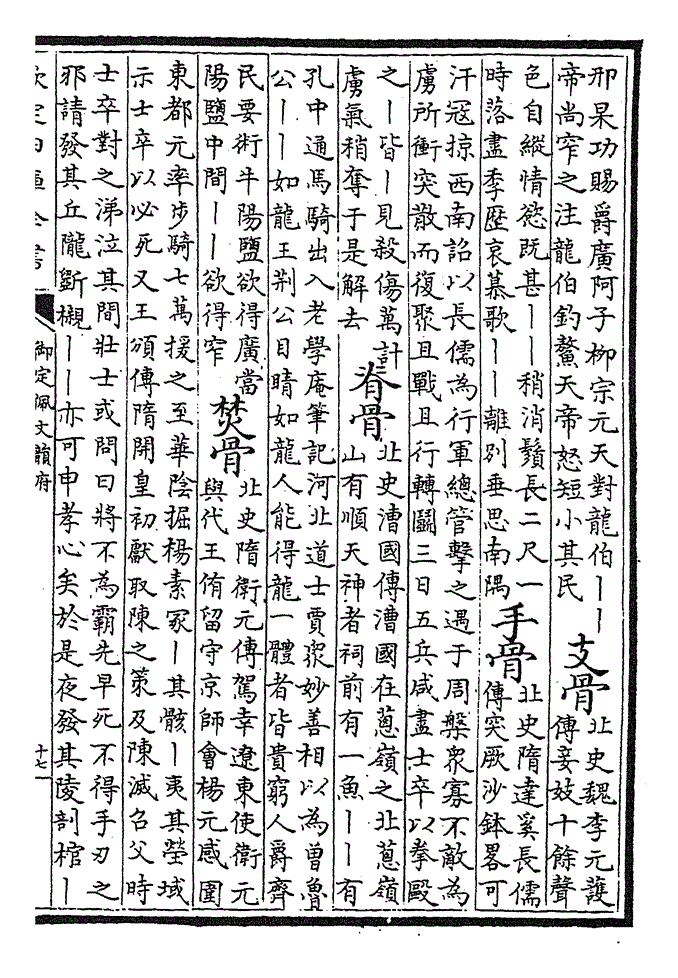 邢杲功賜爵廣阿子柳宗元天對龍伯丨丨
帝尚窄之注龍伯釣鰲天帝怒短小其民
支骨
北史魏李元護
傳妾妓十餘聲
色自縱情慾既甚丨丨稍消鬚長二尺一
時落盡季歴哀慕歌丨丨離別垂思南隅
手骨
北史隋達奚長儒
傳突厥沙鉢畧可
汗冦掠西南詔以長儒為行軍總管擊之遇于周槃衆寡不敵為
虜所衝突散而復聚且戰且行轉鬭三日五兵咸盡士卒以拳毆
之丨皆丨見殺傷萬計
虜氣稍奪于是解去
脊骨
北史漕國傳漕國在蔥嶺之北蔥嶺
山有順天神者祠前有一魚丨丨有
孔中通馬騎出入老學庵筆記河北道士賈衆妙善相以為曾魯
公丨丨如龍王荆公目睛如龍人能得龍一體者皆貴窮人爵齊
民要術牛陽鹽欲得廣當
陽鹽中間丨丨欲得窄
焚骨
北史隋衛元傳駕幸遼東使衛元
與代王侑留守京師會楊元感圍
東都元率步騎七萬援之至華陰掘楊素冢丨其骸丨夷其塋域
示士卒以必死又王頒傳隋開皇初獻取陳之策及陳滅召父時
士卒對之涕泣其間壯士或問曰將不為霸先早死不得手刃之
邪請發其丘隴斵櫬丨丨亦可申孝心矣於是夜發其陵剖棺丨
欽定四庫全書
御定佩文韻府
十七